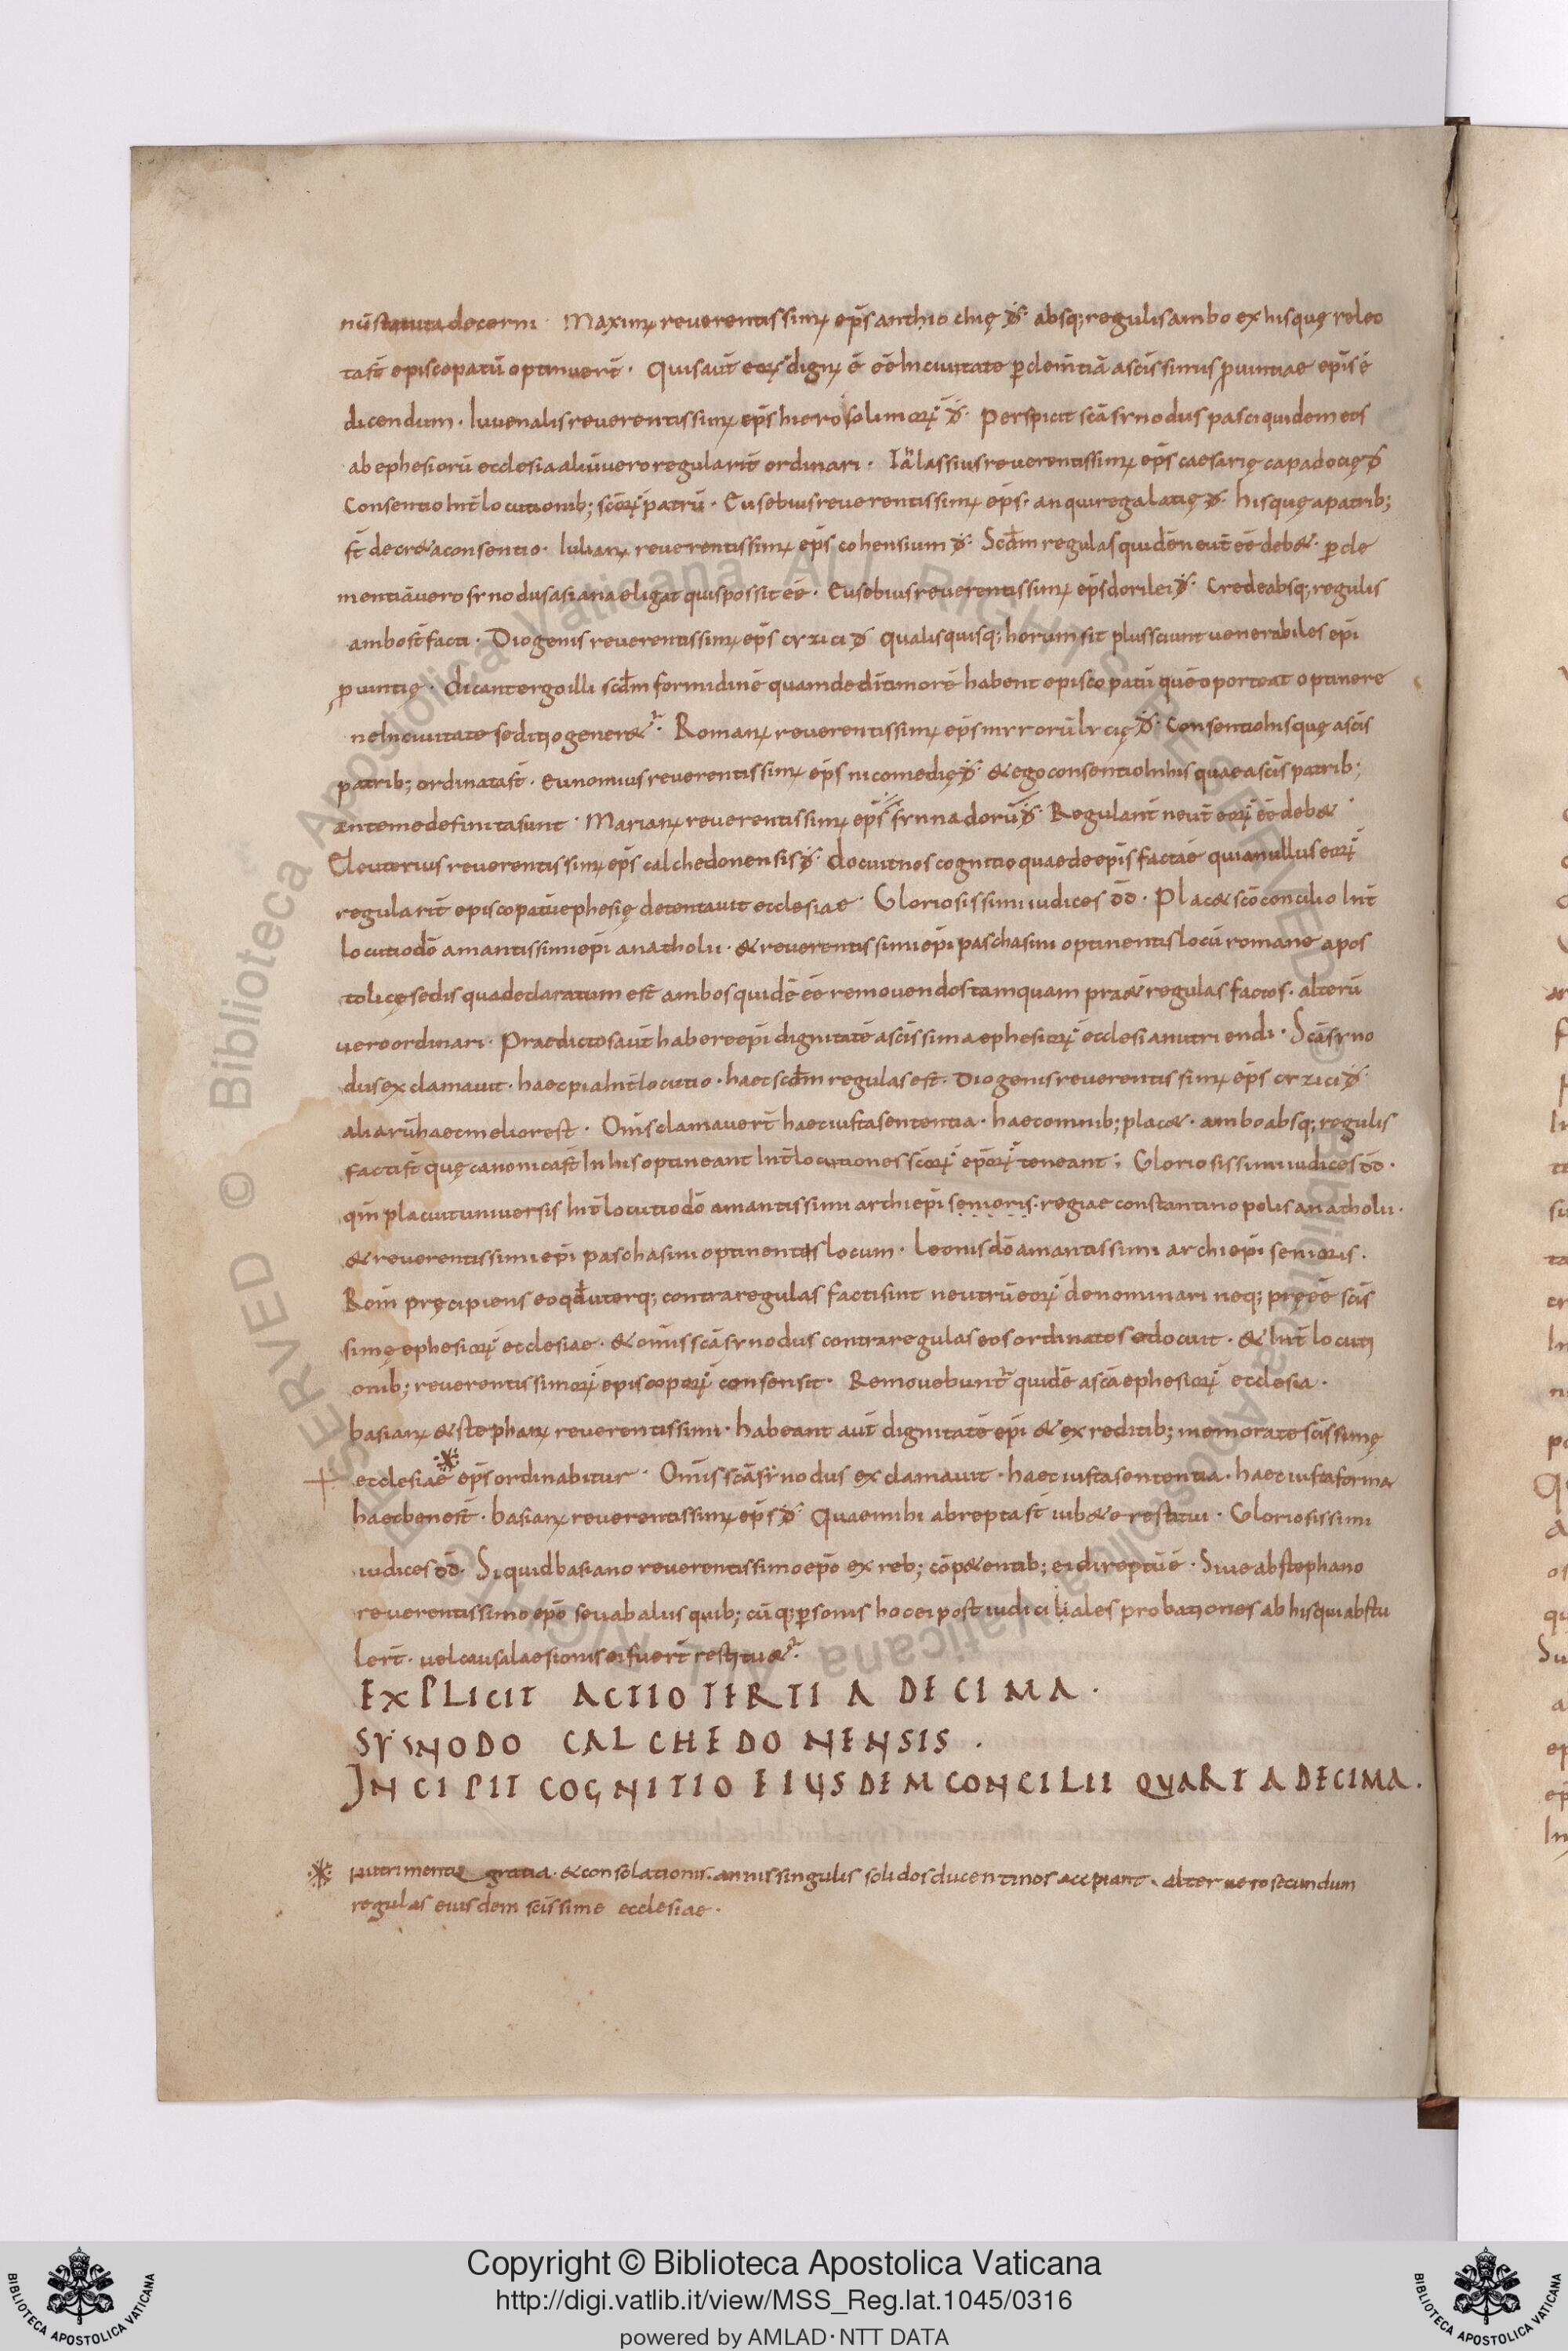 nū statuta decerni · Maximꝰ reverentissimꝰ ep̄s anthiochię đ· absq; regulis ambo ex his quę relec
ta st̄ episcopatū optinuer̄t · Quis aūt eorꝝ dignꝰ ē eē In civitate ꝑ clem̄tiā a sc̄issimis ꝓvintiae ep̄is ē
dicendum · Iuvenalis reverentissimꝰ ep̄s hierosolimorꝝ đ· Perspicit sc̄a synodus pasci quidem eos
ab ephesiorū ecclesia aliū vero regularit̄ ordinari · Tałassius reverentissimꝰ ep̄s caesarię capadocię đ
Consentio Int̄locutionib; sc̄orꝝ patrū · Eusebius reverentissimꝰ ep̄s · anquire galatię đ· his quę a patrib;
st̄ decr&a consentio · Iulianꝰ reverentissimꝰ ep̄s cohensium đ· Scđm regulas quidē neut̄ eē deb&· ꝑ cle
mentiā vero synodus asiana eligat quis possit eē · Eusebius reverentissimꝰ ep̄s dorilei đ· Crede absq; regulis
ambo st̄ facti · Diogenis reverentissimꝰ ep̄s cyzici đ qualis quisq; horum sit plus sciunt venerabiles ep̄i
ꝓvintię · dicant ergo illi scđm formidinē quam de dī timorē habent episcopatū quē oporteat optinere
ne In civitate seditio gener&ʳ· Romanꝰ reverentissimꝰ ep̄s myrorū lycię đ· Consentio his quę a sc̄is
patrib; ordinata st̄ · eunomius reverentissimꝰ ep̄s nicomedię đ· & ego consentio In his quae a sc̄is patrib;
ante me definita sunt · Marianꝰ reverentissimꝰ ep̄s synnadorū đ· Regularit̄ neut̄ eorꝝ eē deb& ·
Eleuterius reverentissimꝰ ep̄s calchedonensis đ· docuit nos cognitio quae de ep̄is facta ē quia nullus eorꝝ
regularit̄ episcopatū ephesię detentavit ecclesiae · Gloriosissimi iudices đđ · Plac& sc̄o concilio Int̄
locutio dō amantissimi ep̄i anatholii · & reverentissimi ep̄i paschasini optinentis locū romane apos
tolicę sedis qua declaratum est ambos quidē eē removendos tamquam praet̄ regulas factos · alterū
vero ordinari · Praedictos aūt habere ep̄i dignitatē a sc̄issima ephesiorꝝ ecclesia nutriendi · Sc̄a syno
dus exclamavit · haec pia Int̄locutio · haec scđm regulas est · Diogenis reverentissimꝰ ep̄s cyzici đ·
aliarū haec melior est · Om̄is clamaver̄t haec iusta sententia · haec omnib; plac& · ambo absq; regulis
facti st̄ quę canonica st̄ In his optineant Int̄locutiones sc̄orꝝ ep̄orꝝ teneant ; Gloriosissimi iudices đđ ·
qm̄ placuit universis Int̄locutio dō amantissimi archiep̄i senioris · regiae constantinopolis anatholii ·
& reverentissimi ep̄i paschasini optinentis locum · leonis dō amantissimi archiep̄i senioris ·
Rom̄ pręcipiens eo qđ uterq; contra regulas facti sint neutrū eorꝝ denominari neq; pręeē sc̄is
simę ephesiorꝝ ecclesiae · & om̄is sc̄a synodus contra regulas eos ordinatos edocuit · & Int̄locuti
onib; reverentissimorꝝ episcoporꝝ consensit · Removebunt̄ quidē a sc̄a ephesiorꝝ ecclesia ·
basianꝰ & stephanꝰ reverentissimi · habeant aūt dignitatē ep̄i & ex reditib; memorate sc̄issimę
ecclesiae ep̄s ordinabitur · Om̄is sc̄a synodus exclamavit · haec iusta sententia · haec iusta forma
haec bene st̄ · basianꝰ reverentissimꝰ ep̄s đ· Quae mihi abrepta st̄ iub&e restitui · Gloriosissimi
iudices đđ· Si quid basiano reverentissimo ep̄o ex reb; cōp&entib; ei direptū ē · Sive ab stephano
reverentissimo ep̄o seu ab aliis quib; cū q; ꝑsonis hoc ei post iudiciales probationes ab his qui abstu
ler̄t · vel causa laesionis ei fuer̄t restitu&ʳ·
EXPLICIT ACTIO TERTIA DECIMA ·
SYNODO CALCHEDONENSIS ·
INCIPIT COGNITIO EIUSDEM CONCILII QUARTA DECIMA ·
nutrimentę gratia · & consolationis · annis singulis solidos ducentinos accipiant · alter vero secundum
regulas eiusdem sc̄issime ecclesiae ·
Copyright © Biblioteca Apostolica Vaticana
http://digi.vatlib.it/view/MSS_Reg.lat.1045/0316
powered by AMLAD·NTT DATA